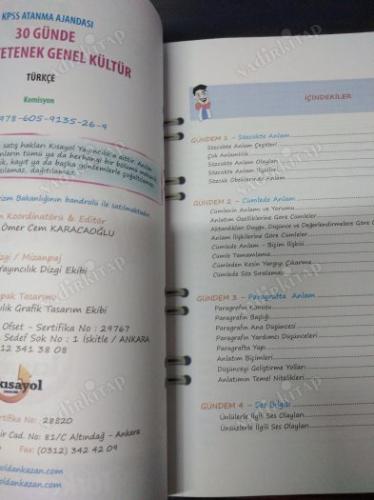 KPSS ATANMA AJANDASI
30 GÜNDE
YETENEK GENEL KÜLTÜR
TÜRKÇE
Komisyon
978-605-9135-26-9
satış hakları Kısayol Yayıncılık'a aittir.
tümü ya da herhangi bir bölümü
kayıt ya da başka yöntemlerle
dağıtılamaz.
Bakanlığının bandrolü ile satılmaktadır.
Koordinatörü & Editör
Ömer Cem KARACAOĞLU
Dizgi / Mizanpaj
Yayıncılık Dizgi Ekibi
Kapak Tasarımı
Grafik Tasarım Ekibi
Ofset - Sertifika No : 29767
Sedef Sok No : 1 İskitle / ANKARA
312 341 38 08
kısayol
Sertifika No: 28820
Cad. No: 81/C Altındağ - Ankara
Fax: (0312) 342 42 09
yoldankazan.com
yoldankazan.com
İÇİNDEKİLER
GÜNDEM 1 - Sözcükte Anlam
Sözcükte Anlam Çeşitleri
Çok Anlamlılık
Sözcükte Anlam Olayları
Sözcükte Anlam İlgileri
Sözcük Öbeklerinde Anlam
GÜNDEM 2 - Cümlede Anlam
Cümlenin Anlamı ve Yorumu
Anlatım Özelliklerine Göre Cümleler
Aktardıkları Duygu, Düşünce ve Değerlendirmelere Göre
Anlam İlişkilerine Göre Cümleler
Cümlede Anlam - Biçim İlişkisi
Cümle Tamamlama
Cümleden Kesin Yargıyı Çıkarma
Cümlede Söz Sıralaması
GÜNDEM 3 - Paragrafta Anlam
Paragrafın Konusu
Paragrafın Başlığı
Paragrafın Ana Düşüncesi
Paragrafın Yardımcı Düşünceleri
Paragrafta Yapı
Anlatım Biçimleri
Düşünceyi Geliştirme Yolları
Anlatımın Temel Nitelikleri
GÜNDEM 4 - Ses Bilgisi
Ünlülerle İlgili Ses Olayları
Ünsüzlerle İlgili Ses Olayları